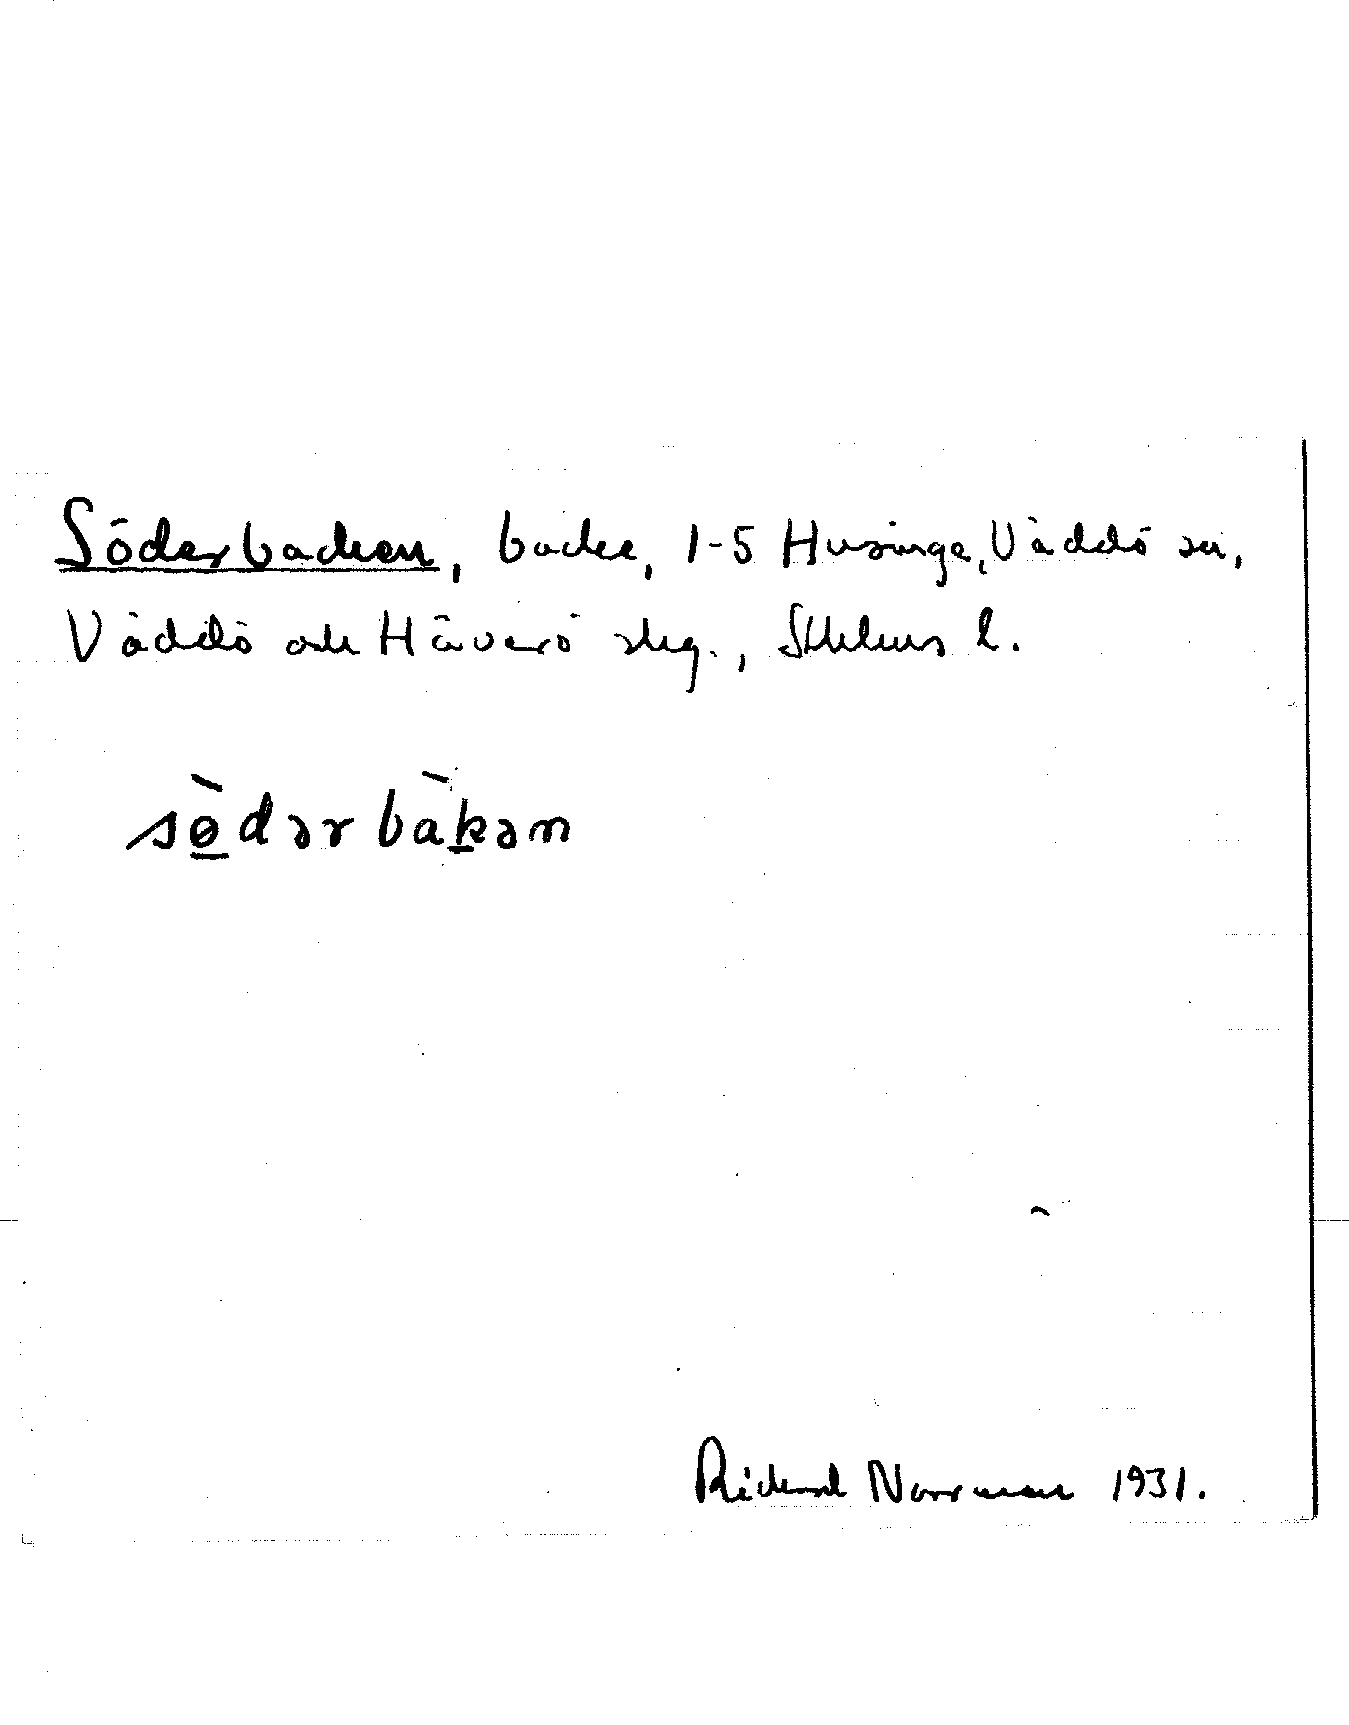 Söderbacken, backe, 1-5 Husinge, Väddö sn,
Väddö och Häverö skg., Sthlms l.
sø̀dərbàkən
Rickard Norrman 1931.